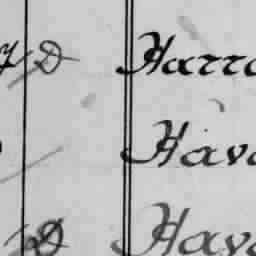 7 D Harro
Hava
D Hava